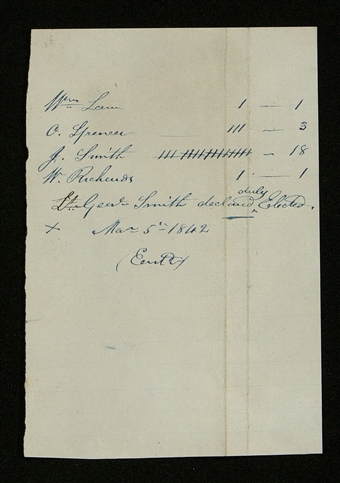 Wm Law 1 — 1
C. Spencer — 111 — 3
J. Smith — 18
W. Richards 1 — 1
Lt. Gen. Smith declared duly Elected.
x Mar 5th 1842